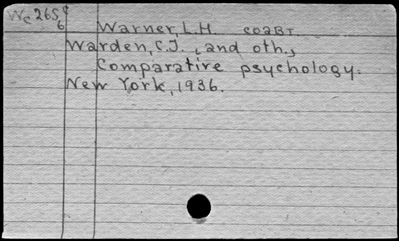 Wc 265 c/6
Warner, L.H. соавт.
Warden, C.J., and oth.,
Comparative psychology.
New York, 1936.